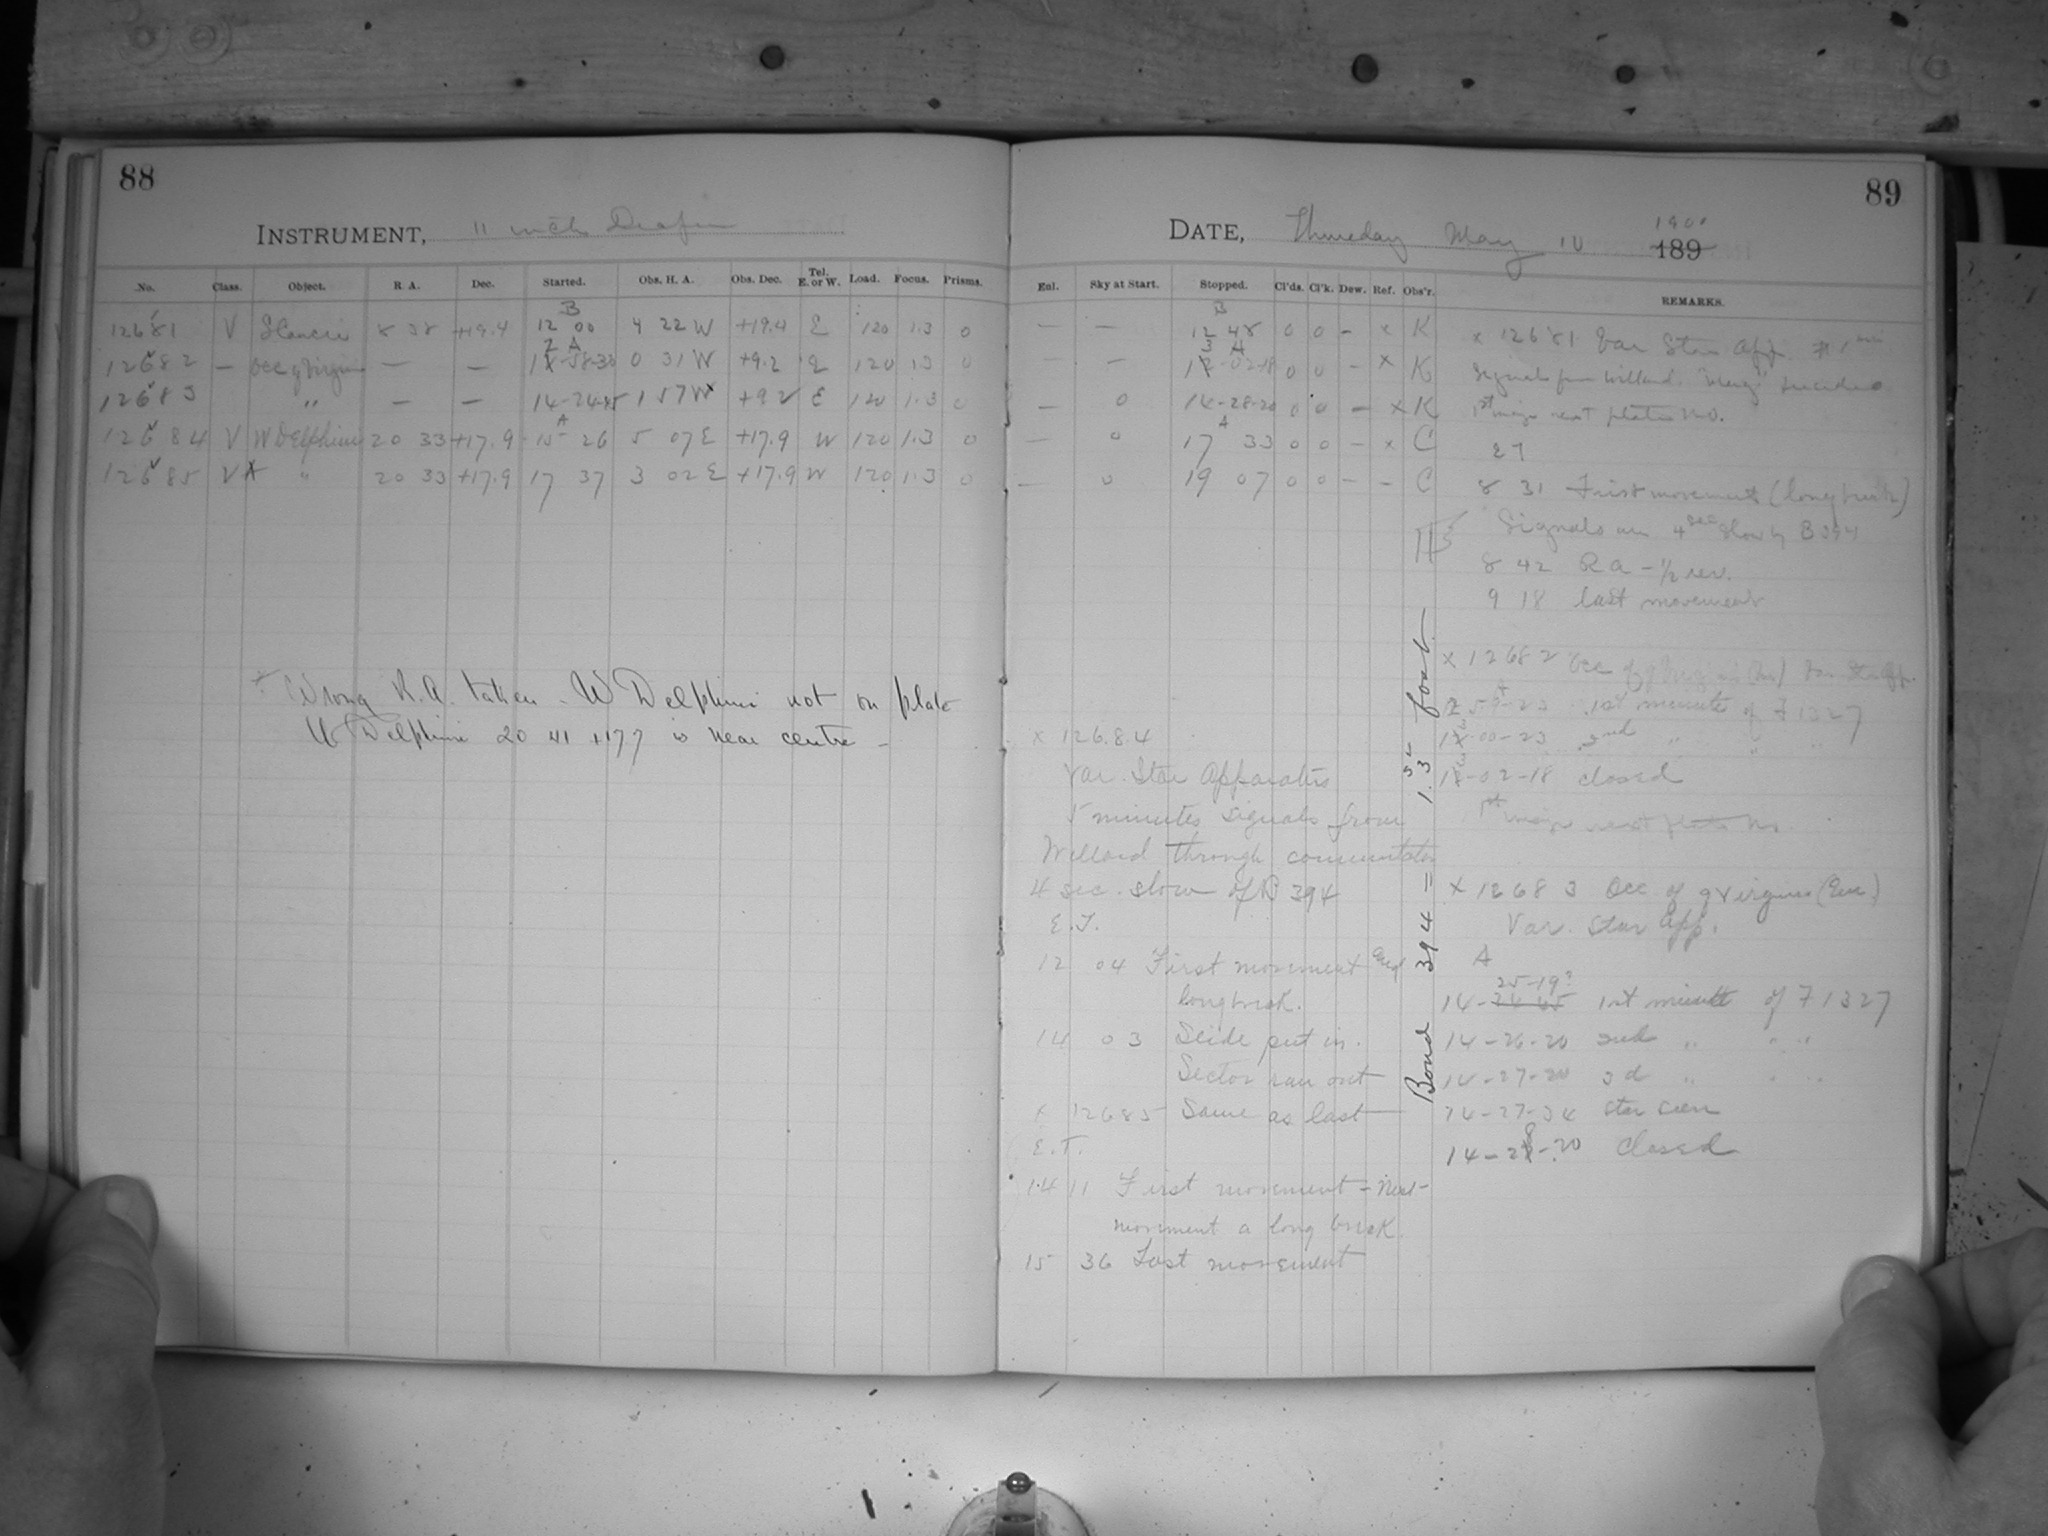 88
INSTRUMENT, 11 inch Draper
No. Class. Object. R. A. Dec. Started. Obs. H. A. Obs. Dec. Tel. E. or W. Load. Focus. Prisms.
B
12681 V S Cancri 8 38 +19.4 12 00 4 22 W +19.4 E 120 1.3 0
A
12682 — Occ g Virginis — — 58-30 0 31 W +9.2 E 120 1.3 0
12683 " — — 14-24-45 1 57 W +9 2 E 120 1.3 0
A
12684 V W Delphini 20 33 +17.9 15 26 5 07 E +17.9 W 120 1.3 0
12685 V x " 20 33 +17.9 17 37 3 02 E +17.9 W 120 1.3 0
Wrong R.A. taken - W Delphini not on plate
Delphini 20 41 +17 7 is near centre -
89
DATE, Thursday May 10 1900 189
Enl. Sky at Start. Stopped. Cl'ds. Cl'k. Dew. Ref. Obs'r. REMARKS.
B
— — 12 48 0 0 – x K
A
— — 02-18 0 0 – x K
— 0 14-28-20 0 0 – x K
A
— 0 17 33 0 0 – x C
— 0 19 07 0 0 – – C
x 12681 Var Star App.
Signals from Willard.
1st next plate no.
E T
8 31 First movement (long break)
Signals are 4 sec slow of B 394
8 42 R A – 1/2 rev.
9 18 last movement
x 12682 Occ of g Virginis
1st minute of F 1327
00-23 2nd " " "
02-18 closed
1st next plate no
x 12683 Occ of g Virginis
Var. Star App.
A
25-19?
14-24 45 1st minute of F 1327
14-26-20 2nd " " "
14-27-20 3d " " "
14-27-34 star seen
14-28-20 Closed
x 126.8.4
Var. Star Apparatus
5 minutes signals from
Willard through commutator
4 sec. slow of B 394
E.T.
12 04 First movement and
long break.
14 03 Slide put in.
Sector ran out
x 12685 Same as last
E.T.
14 11 First movement – Next
movement a long break.
15 36 Last movement
Bond 394 = 1.3 s fast